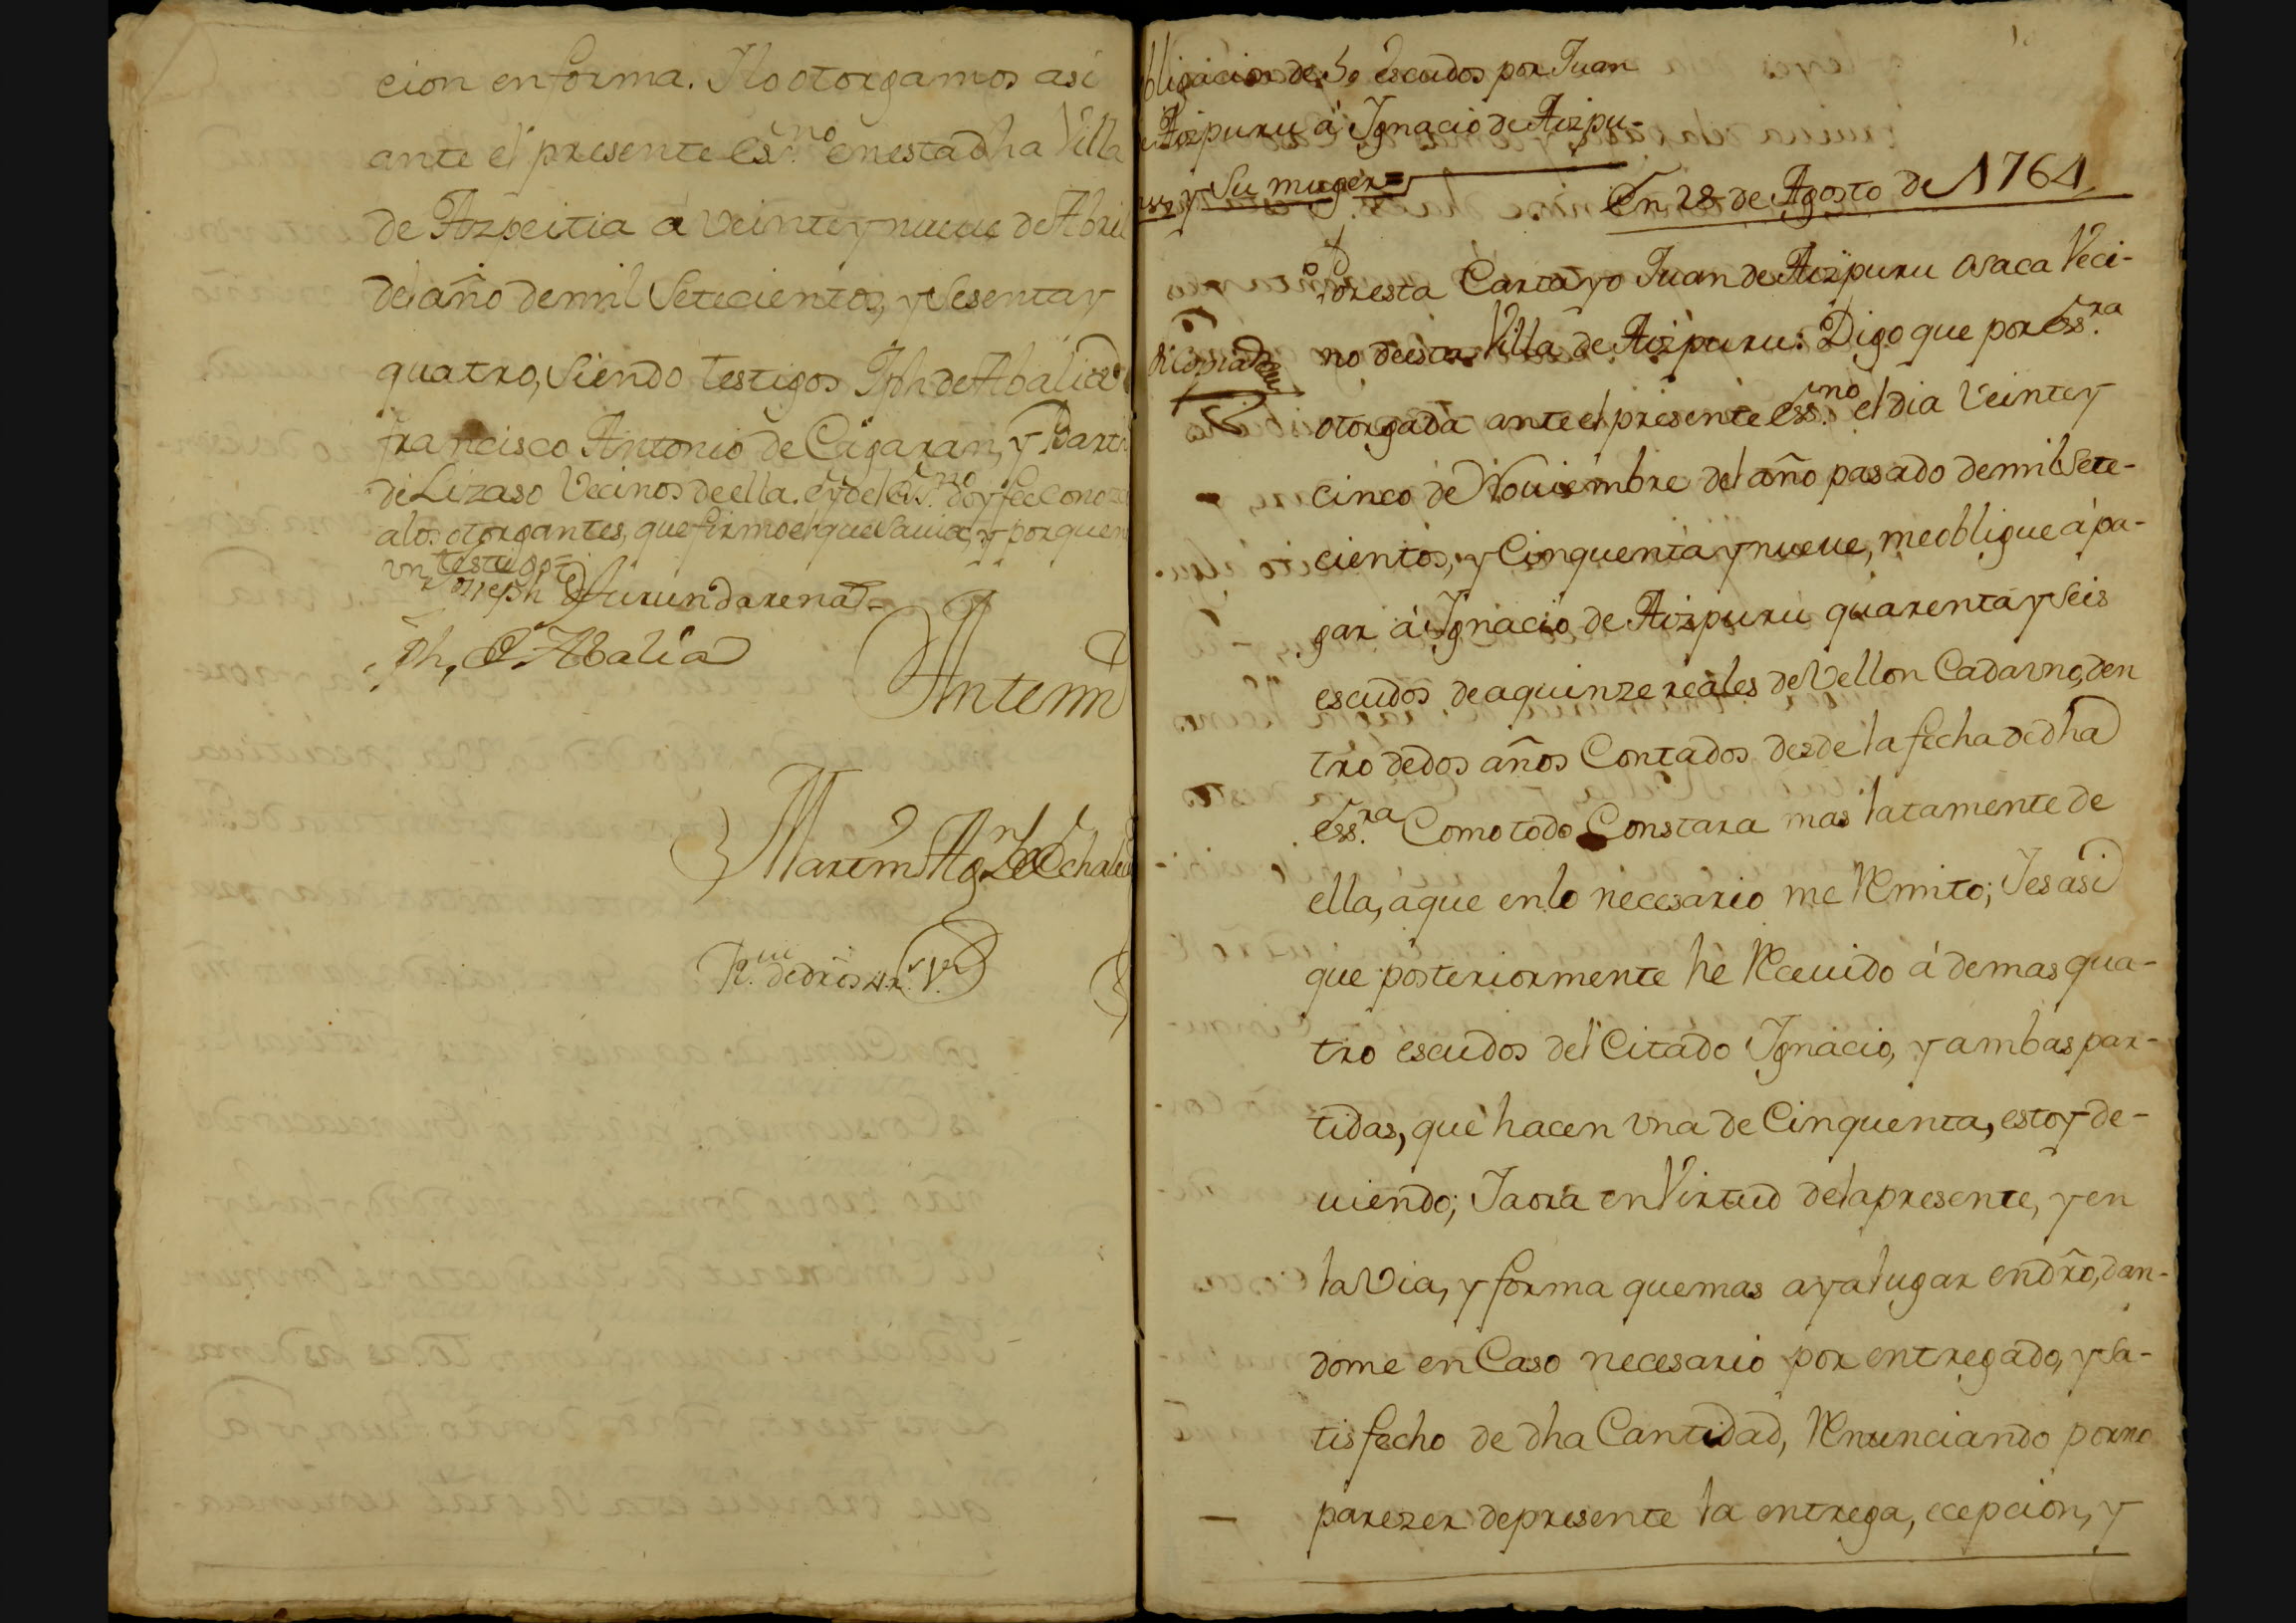 cion enforma. Ylo otorgamos asi
ante el presente es.no en esta dha Villa
de Azpeitia á veinte y nueue de Abril
del año de mil Setecientos, y Sesenta y
quatro, siendo testigos Jph de Abalia
francisco Antonio de Cigaran, y Barto
de Lizaso Vecinos de ella. eyo el es.no doy fee conoz
alos otorgantes, que firmo el que savia, y por quen
vn testigo=
Joseph de Aurundarena
Jph, de Abalia
Antemi
Martin Ag.n de Echa
R.vi de dros 4 r.s V.n
bligacion de 50 escudos por Juan
e Aizpuru á Ygnacio de Aizpu-
y Su muger=
En 28 de Agosto de 1764
Por esta Carta yo Juan de Aizpuru Osaca Veci-
di copia
no de esta Villa de Aizpuru: Digo que por ess.ra
otorgada ante el presente ess.no el dia Veinte y
cinco de Nouiembre del año pasado de mil Sete-
cientos, y Cinquenta y nueue, me obligue á pa-
gar á Ygnacio de Aizpuru quarenta y Seis
escudos de aquinze reales de Vellon Cada vno, den
tro de dos años Contados desde la fecha de dha
ess.ra Como todo Constara mas latamente de
ella, aque en lo necesario me Remito; Y es asi
que posteriormente hé Receuido á demas qua-
tro escudos del Citado Ygnacio, y ambas par-
tidas, que hacen vna de Cinquenta, estoy de-
uiendo; Y aora en Virtud de la presente, y en
la Via, y forma que mas aya lugar en dro, dan-
dome en Caso necesario por entregado, y Sa-
tisfecho de dha Cantidad, Renunciando por no
parezer de presente la entrega, ecepcion, y